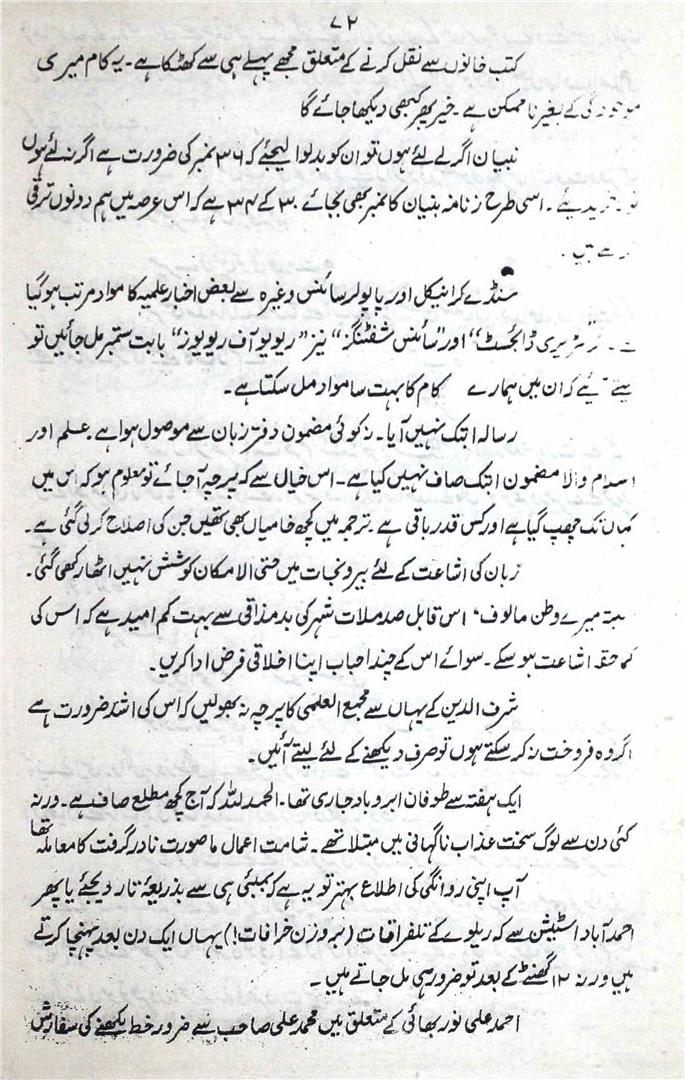 ۷۲
کتب خانوں سے نقل کرنے کے متعلق مجھے پہلے ہی سے کھٹکا ہے۔ یہ کام میری
موجودگی کے بغیر ناممکن ہے۔ خیر پھر کبھی دیکھا جائے گا
بنیان اگر لے لئے ہوں تو ان کو بدلوا لیجئے کہ ۳۶ نمبر کی ضرورت ہے اگر نہ لئے ہوں
خریدیئے۔ اسی طرح زنانہ بنیان کا نمبر بھی بجائے ۳۰ کے ۳۴ ہے کہ اس عرصہ میں ہم دونوں ترقی
ہیں۔
سنڈے کرانیکل اور پاپولر سائنس وغیرہ سے بعض اخبار علمیہ کا مواد مرتب ہو گیا
ڈائجسٹ“ اور ”سائنس شفٹنگز“ نیز ”ریویو آف ریویوز“ بابت ستمبر مل جائیں تو
کہ ان میں ہمارے کام کا بہت سا مواد مل سکتا ہے۔
رسالہ ابتک نہیں آیا۔ نہ کوئی مضمون دفتر زبان سے موصول ہوا ہے۔ علم اور
اسلام والا مضمون ابتک صاف نہیں کیا ہے۔ اس خیال سے کہ پرچہ آ جائے تو معلوم ہو کہ اس میں
کہاں تک چھپ گیا ہے اور کس قدر باقی ہے۔ ترجمہ میں کچھ خامیاں بھی تھیں جن کی اصلاح کر لی گئی ہے۔
زبان کی اشاعت کے لئے بیرونجات میں حتی الامکان کوشش نہیں اٹھا رکھی گئی۔
البتہ میرے وطن مالوف، اس قابل صد ملات شہر کی بد مذاقی سے بہت کم امید ہے کہ اس کی
کما حقہ اشاعت ہو سکے۔ سوائے اس کے چند احباب اپنا اخلاقی فرض ادا کریں۔
شرف الدین کے یہاں سے مجمع العلمی کا پرچہ نہ بھولیں کہ اس کی اشد ضرورت ہے
اگر وہ فروخت نہ کر سکتے ہوں تو صرف دیکھنے کے لئے لیتے آئیں۔
ایک ہفتہ سے طوفان ابر و باد جاری تھا۔ الحمدللہ کہ آج کچھ مطلع صاف ہے۔ ورنہ
کئی دن سے لوگ سخت عذاب ناگہانی میں مبتلا تھے۔ شامت اعمال ما صورت نادر گرفت کا معاملہ تھا
آپ اپنی روانگی کی اطلاع بہتر تو یہ ہے کہ بمبئی ہی سے بذریعۂ تار دیجئے یا پھر
احمد آباد اسٹیشن سے کہ ریلوے کے تلغرافات (بر وزن خرافات!) یہاں ایک دن بعد پہنچا کرتے
ہیں ورنہ ۱۲ گھنٹے کے بعد تو ضرور ہی مل جاتے ہیں۔
احمد علی نور بھائی کے متعلق میں محمد علی صاحب سے ضرور خط لکھنے کی سفارش